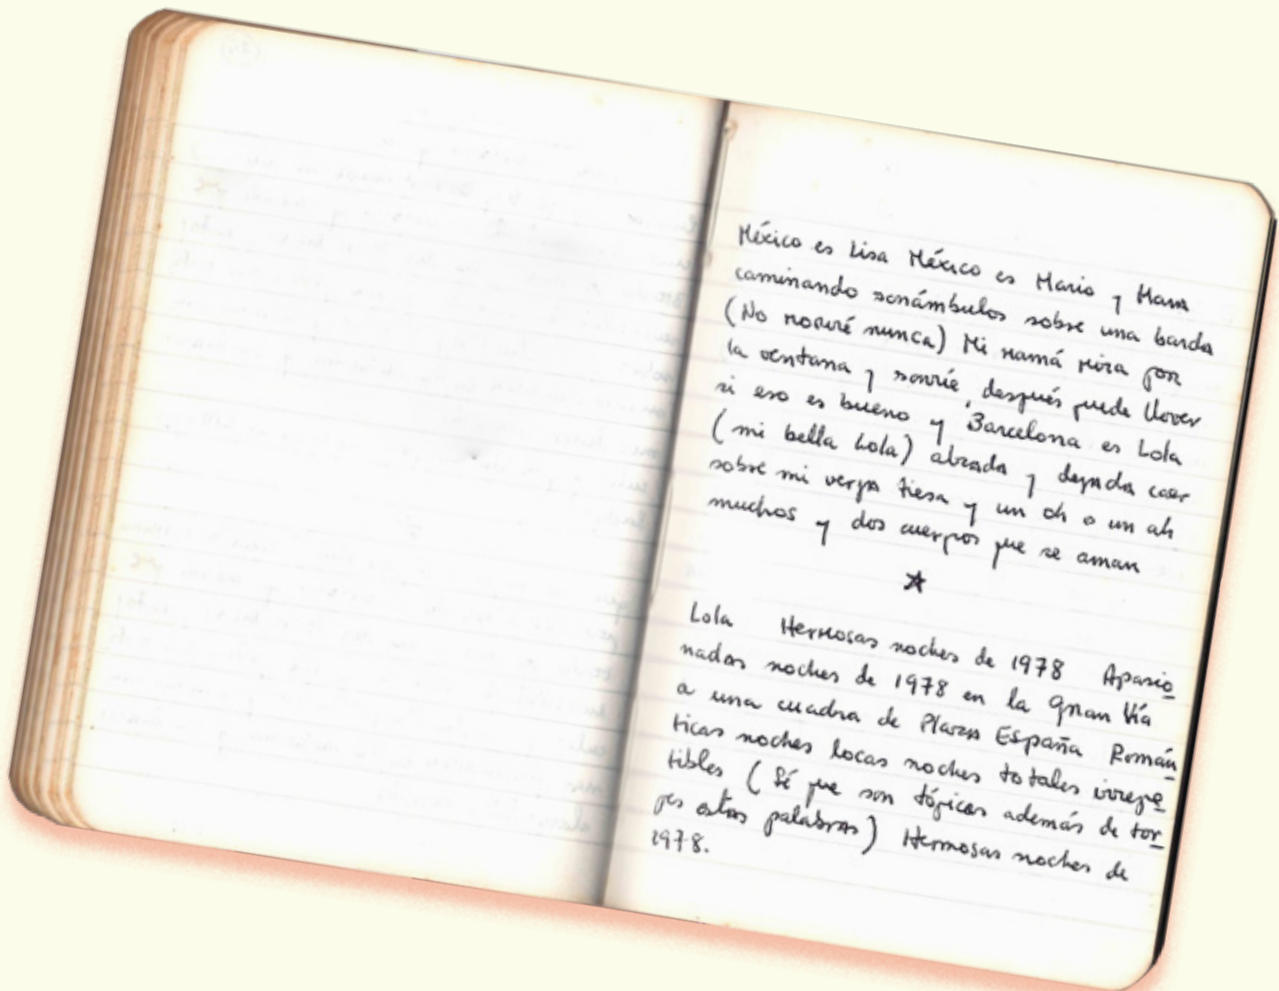 México es Lisa México es Mario y Mara
caminando sonámbulos sobre una barda
(No moriré nunca) Mi mamá mira por
la ventana y sonríe, después puede llover
si eso es bueno y Barcelona es Lola
(mi bella Lola) alzada y dejada caer
sobre mi verga tiesa y un oh o un ah
muchos y dos cuerpos que se aman
Lola Hermosas noches de 1978 Apasio
nadas noches de 1978 en la Gran Vía
a una cuadra de Plaza España Román
ticas noches locas noches totales irrepe
tibles (Sé que son tópicas además de tor
pes estas palabras) Hermosas noches de
1978.